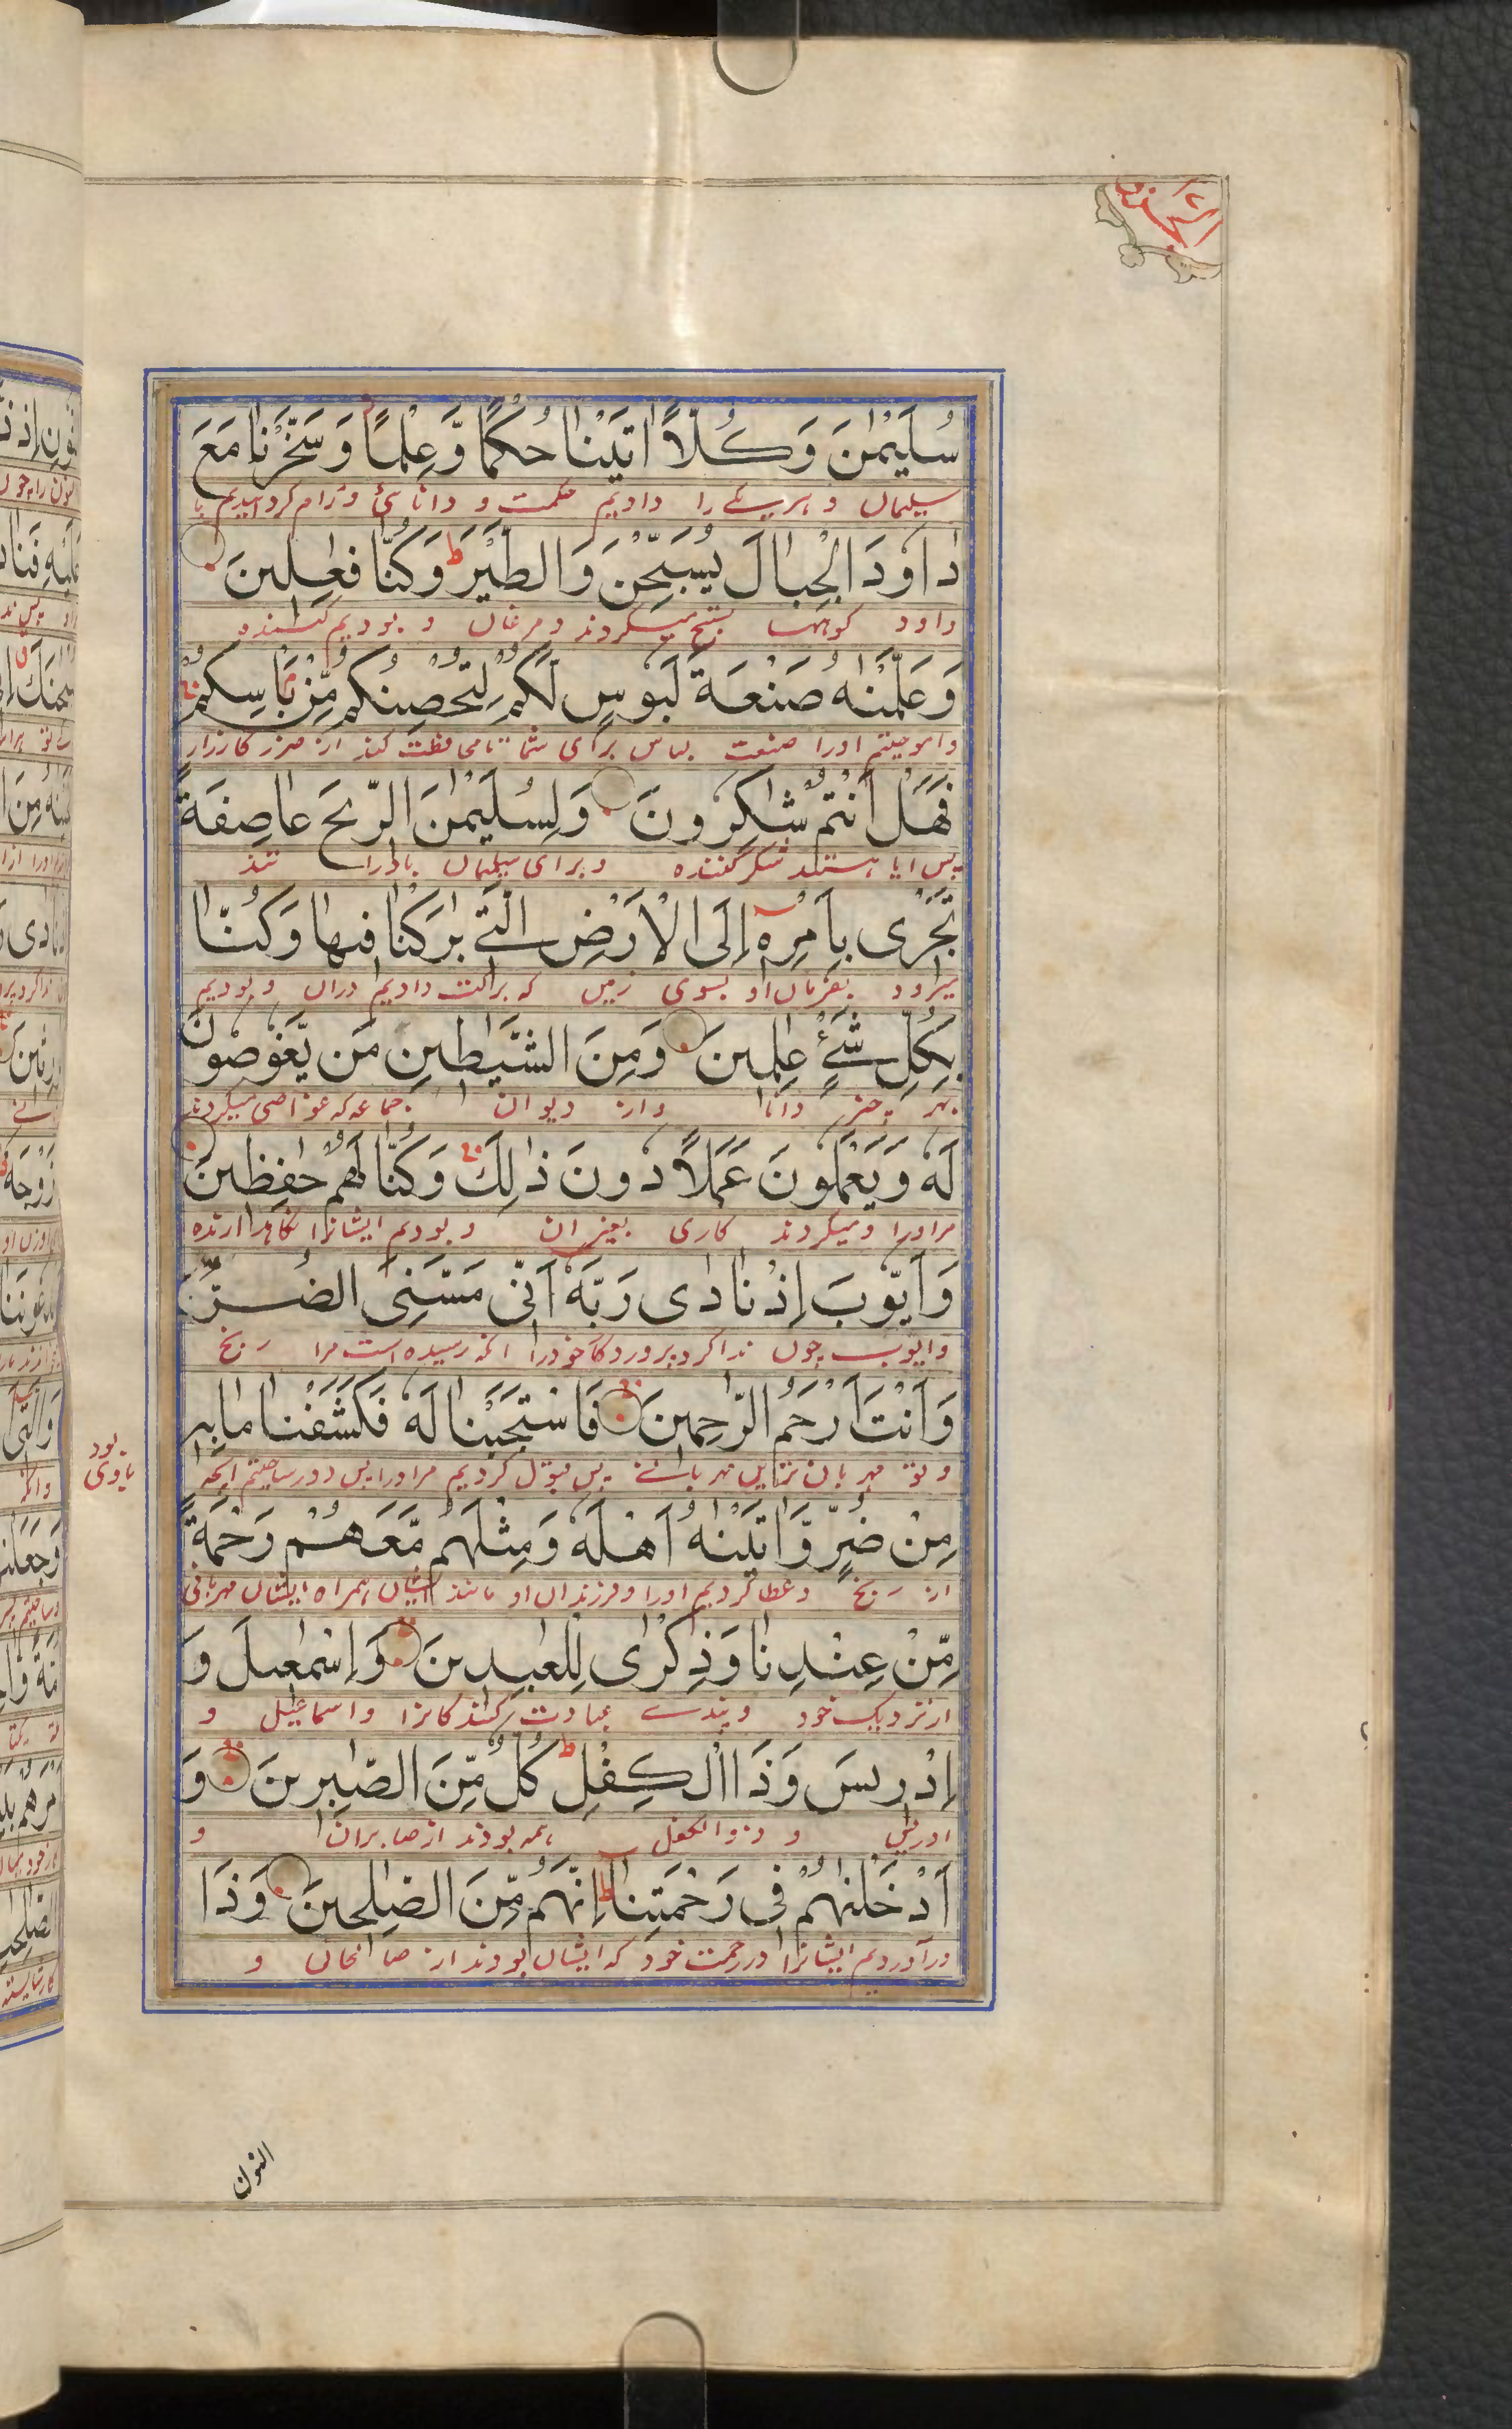 سُلَيْمٰنَ وَكُلًّا اٰتَيْنٰا حُكْمًا وَّعِلْمًا وَسَخَّرْنٰا مَعَ
سلیمان و هریکے را دادیم حکمت و دانائی و رام کردانیدیم با
دٰاوٗدَ الْجِبٰالَ يُسَبِّحْنَ وَالطَّيْرَ ط وَكُنّٰا فٰعِلِينَ
داود کوهها تسبیح میکردند و مرغان و بودیم کننده
وَعَلَّمْنٰهُ صَنْعَةَ لَبُوسٍ لَّكُمْ لِتُحْصِنَكُمْ مِّنْ بَأْسِكُمْ
واموختیم اورا صنعت لباس برای شما تا محافظت کند از ضرر کارزار
فَهَلْ اَنْتُمْ شٰاكِرُونَ وَلِسُلَيْمٰنَ الرِّيْحَ عٰاصِفَةً
پس ایا هستند شکر کننده و برای سلیمان باد را تند
تَجْرِى بِاَمْرِهٖ اِلَى الْاَرْضِ الَّتِى بٰرَكْنٰا فِيهٰا وَكُنّٰا
میرود بفرمان او بسوی زمین که برکت دادیم دران و بودیم
بِكُلِّ شَىْءٍ عٰلِمِينَ وَمِنَ الشَّيٰطِينِ مَن يَّغُوصُونَ
بهر چیز دانا واز دیوان جماعه که غواصی میکردند
لَهٗ وَيَعْمَلُونَ عَمَلًا دُونَ ذٰلِكَ وَكُنّٰا لَهُمْ حٰفِظِينَ
مراورا ومیکردند کاری بغیر ان و بودیم ایشانرا نکاهدارنده
وَاَيُّوبَ اِذْ نٰادٰى رَبَّهٗ اَنِّى مَسَّنِىَ الضُّرُّ
وایوب چون ندا کرد پروردکار خود را انکه رسیده است مرا رنج
وَاَنْتَ اَرْحَمُ الرّٰحِمِينَ فَاسْتَجَبْنٰا لَهٗ فَكَشَفْنٰا مٰا بِهٖ
و تو مهربان ترین مهربانے پس قبول کردیم مراورا پس دور ساختیم انچه
بود
باوی
مِنْ ضُرٍّ وَّاٰتَيْنٰهُ اَهْلَهٗ وَمِثْلَهُم مَّعَهُمْ رَحْمَةً
از رنج و عطا کردیم اورا و فرزندان او مانند ایشان همراه ایشان مهربانی
مِّنْ عِنْدِنٰا وَذِكْرٰى لِلْعٰبِدِينَ وَاِسْمٰعِيلَ وَ
از نزدیک خود و پندے عبادت کنندکانرا و اسماعیل و
اِدْرِيسَ وَذَا الْكِفْلِ ط كُلٌّ مِّنَ الصّٰبِرِينَ وَ
ادریس و ذوالکفل همه بودند از صابران و
اَدْخَلْنٰهُمْ فِى رَحْمَتِنٰا ط اِنَّهُم مِّنَ الصّٰلِحِينَ وَذَا
درآوردیم ایشانرا در رحمت خود که ایشان بودند از صالحان و
النون